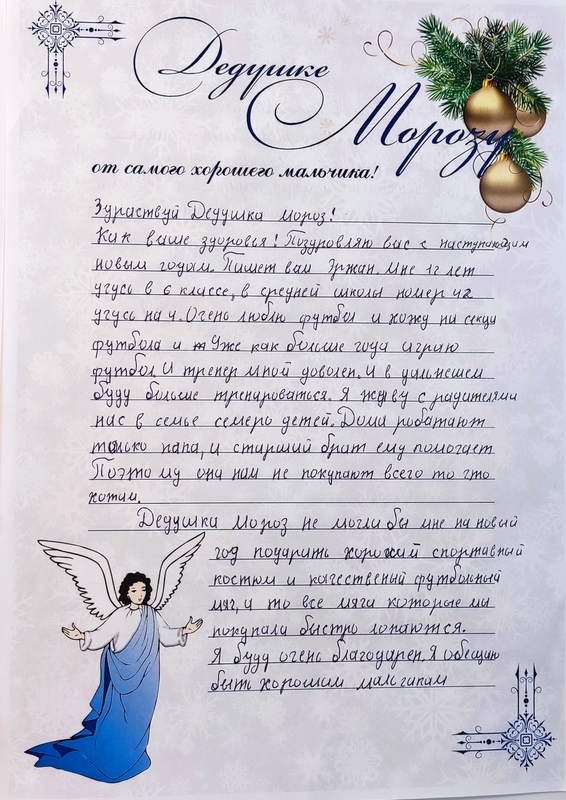 Дедушке
Морозу
от самого хорошего мальчика!
Зураствуй Дедушка мороз!
Как ваше здоровья! Поздуровляю вас с наступающим
новым годом. Пишет вам Эржан. Мне 12 лет
учусь в 6 классе, в средней школы номер 42
учусь на 4. Очень люблю футбол и хожу на секци
футбола и Уже как больше года играю
футбол. И тренер мной доволен. И в дальнешем
буду больше тренироваться. Я живу с радителями
нас в семье семеро детей. Дома работают
только папа, и старший брат ему помогает
Поэтому они нам не покупают всего то что
хотим.
Дедушка Мороз не могли бы мне на новый
год подарить хороший спортавный
костюм и качественый футбольный
мяч, а то все мячи которые мы
покупали быстро лопаются.
Я буду очень благодарен. Я обещаю
быть хорошим мальчикам